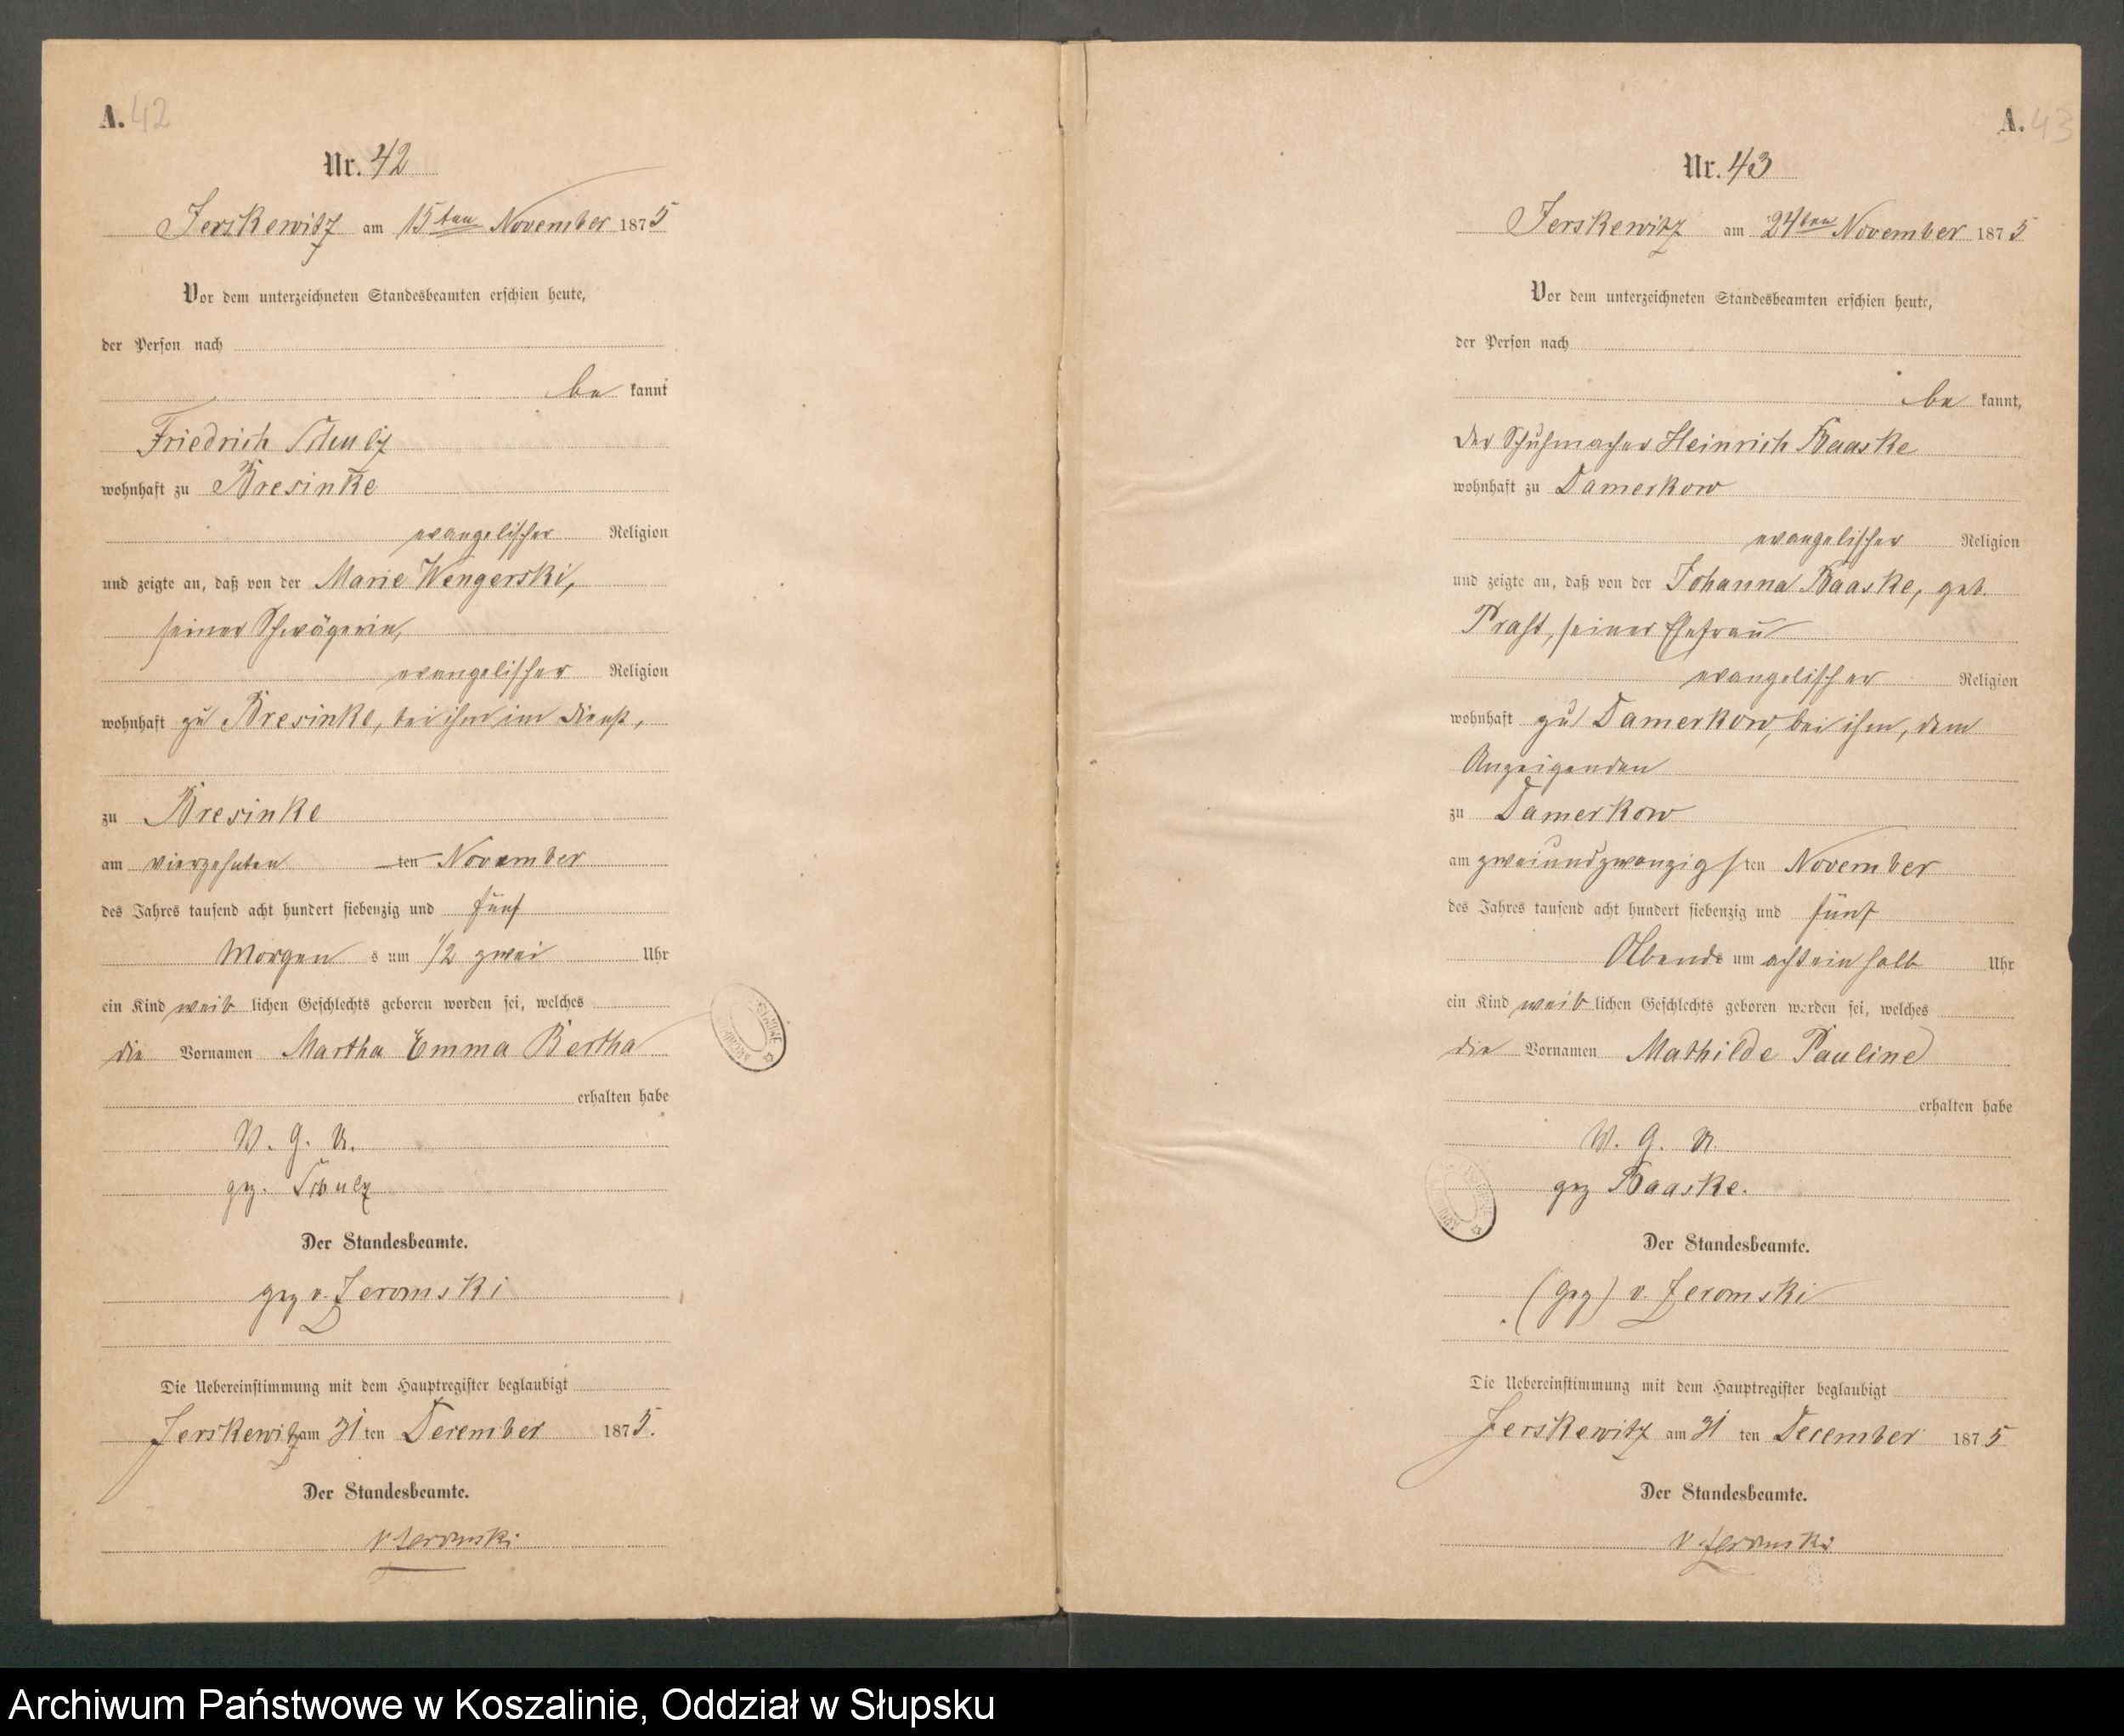 A. 42
Nr. 42
Jerskewitz am 15ten November 1875
Vor dem unterzeichneten Standesbeamten erschien heute,
der Person nach
be kannt
Friedrich Schulz
wohnhaft zu Bresinke
evangelischer Religion
und zeigte an, daß von der Marie Wengerski,
seiner Schwägerin,
evangelischer Religion
wohnhaft zu Bresinke, bei ihm im Dienst,
zu Bresinke
am vierzehnten ten November
des Jahres tausend acht hundert siebenzig und fünf
Morgen s um 1/2 zwei Uhr
ein Kind weib lichen Geschlechts geboren worden sei, welches
die Vornamen Martha Emma Bertha
erhalten habe
V. G. U.
gez. Schulz
Der Standesbeamte.
gez v. Zeromski
Die Uebereinstimmung mit dem Hauptregister beglaubigt
Jerskewitz am 31 ten December 1875.
Der Standesbeamte.
v Zeromski
A. 43
Nr. 43
Jerskewitz am 24ten November 1875
Vor dem unterzeichneten Standesbeamten erschien heute,
der Person nach
be kannt,
der Schuhmacher Heinrich Baaske
wohnhaft zu Damerkow
evangelischer Religion
und zeigte an, daß von der Johanna Baaske, geb.
Prast, seiner Ehefrau
evangelischer Religion
wohnhaft zu Damerkow, bei ihm, dem
Anzeigenden
zu Damerkow
am zweiundzwanzigsten November
des Jahres tausend acht hundert siebenzig und fünf
Abends um acht ein halb Uhr
ein Kind weib lichen Geschlechts geboren worden sei, welches
die Vornamen Mathilde Pauline
erhalten habe
V. G. U.
gez Baaske.
Der Standesbeamte.
(gez) v. Zeromski
Die Uebereinstimmung mit dem Hauptregister beglaubigt
Jerskewitz am 31 ten December 1875
Der Standesbeamte.
v. Zeromski
Archiwum Państwowe w Koszalinie, Oddział w Słupsku